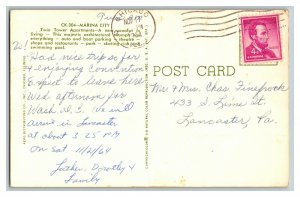 CK.304—MARINA CITY
Twin Tower Apartments — A new concept
in living — This majestic architectural triumph
everything — auto and boat parking — theatre
shops and restaurants — park — skating rink and
swimming pool
CHICAGO
POST CARD
4¢
Hi!
Had nice trip so far
& enjoying Convention
Expect to leave here
Wed afternoon for
Wash. D.C. We will
arrive in Lancaster
at about 3:25 PM
on Sat 11/21/64
Luther, Dorothy &
Family
Mr & Mrs. Chas. Finefrock
433 S. Lime St.
Lancaster, Pa.